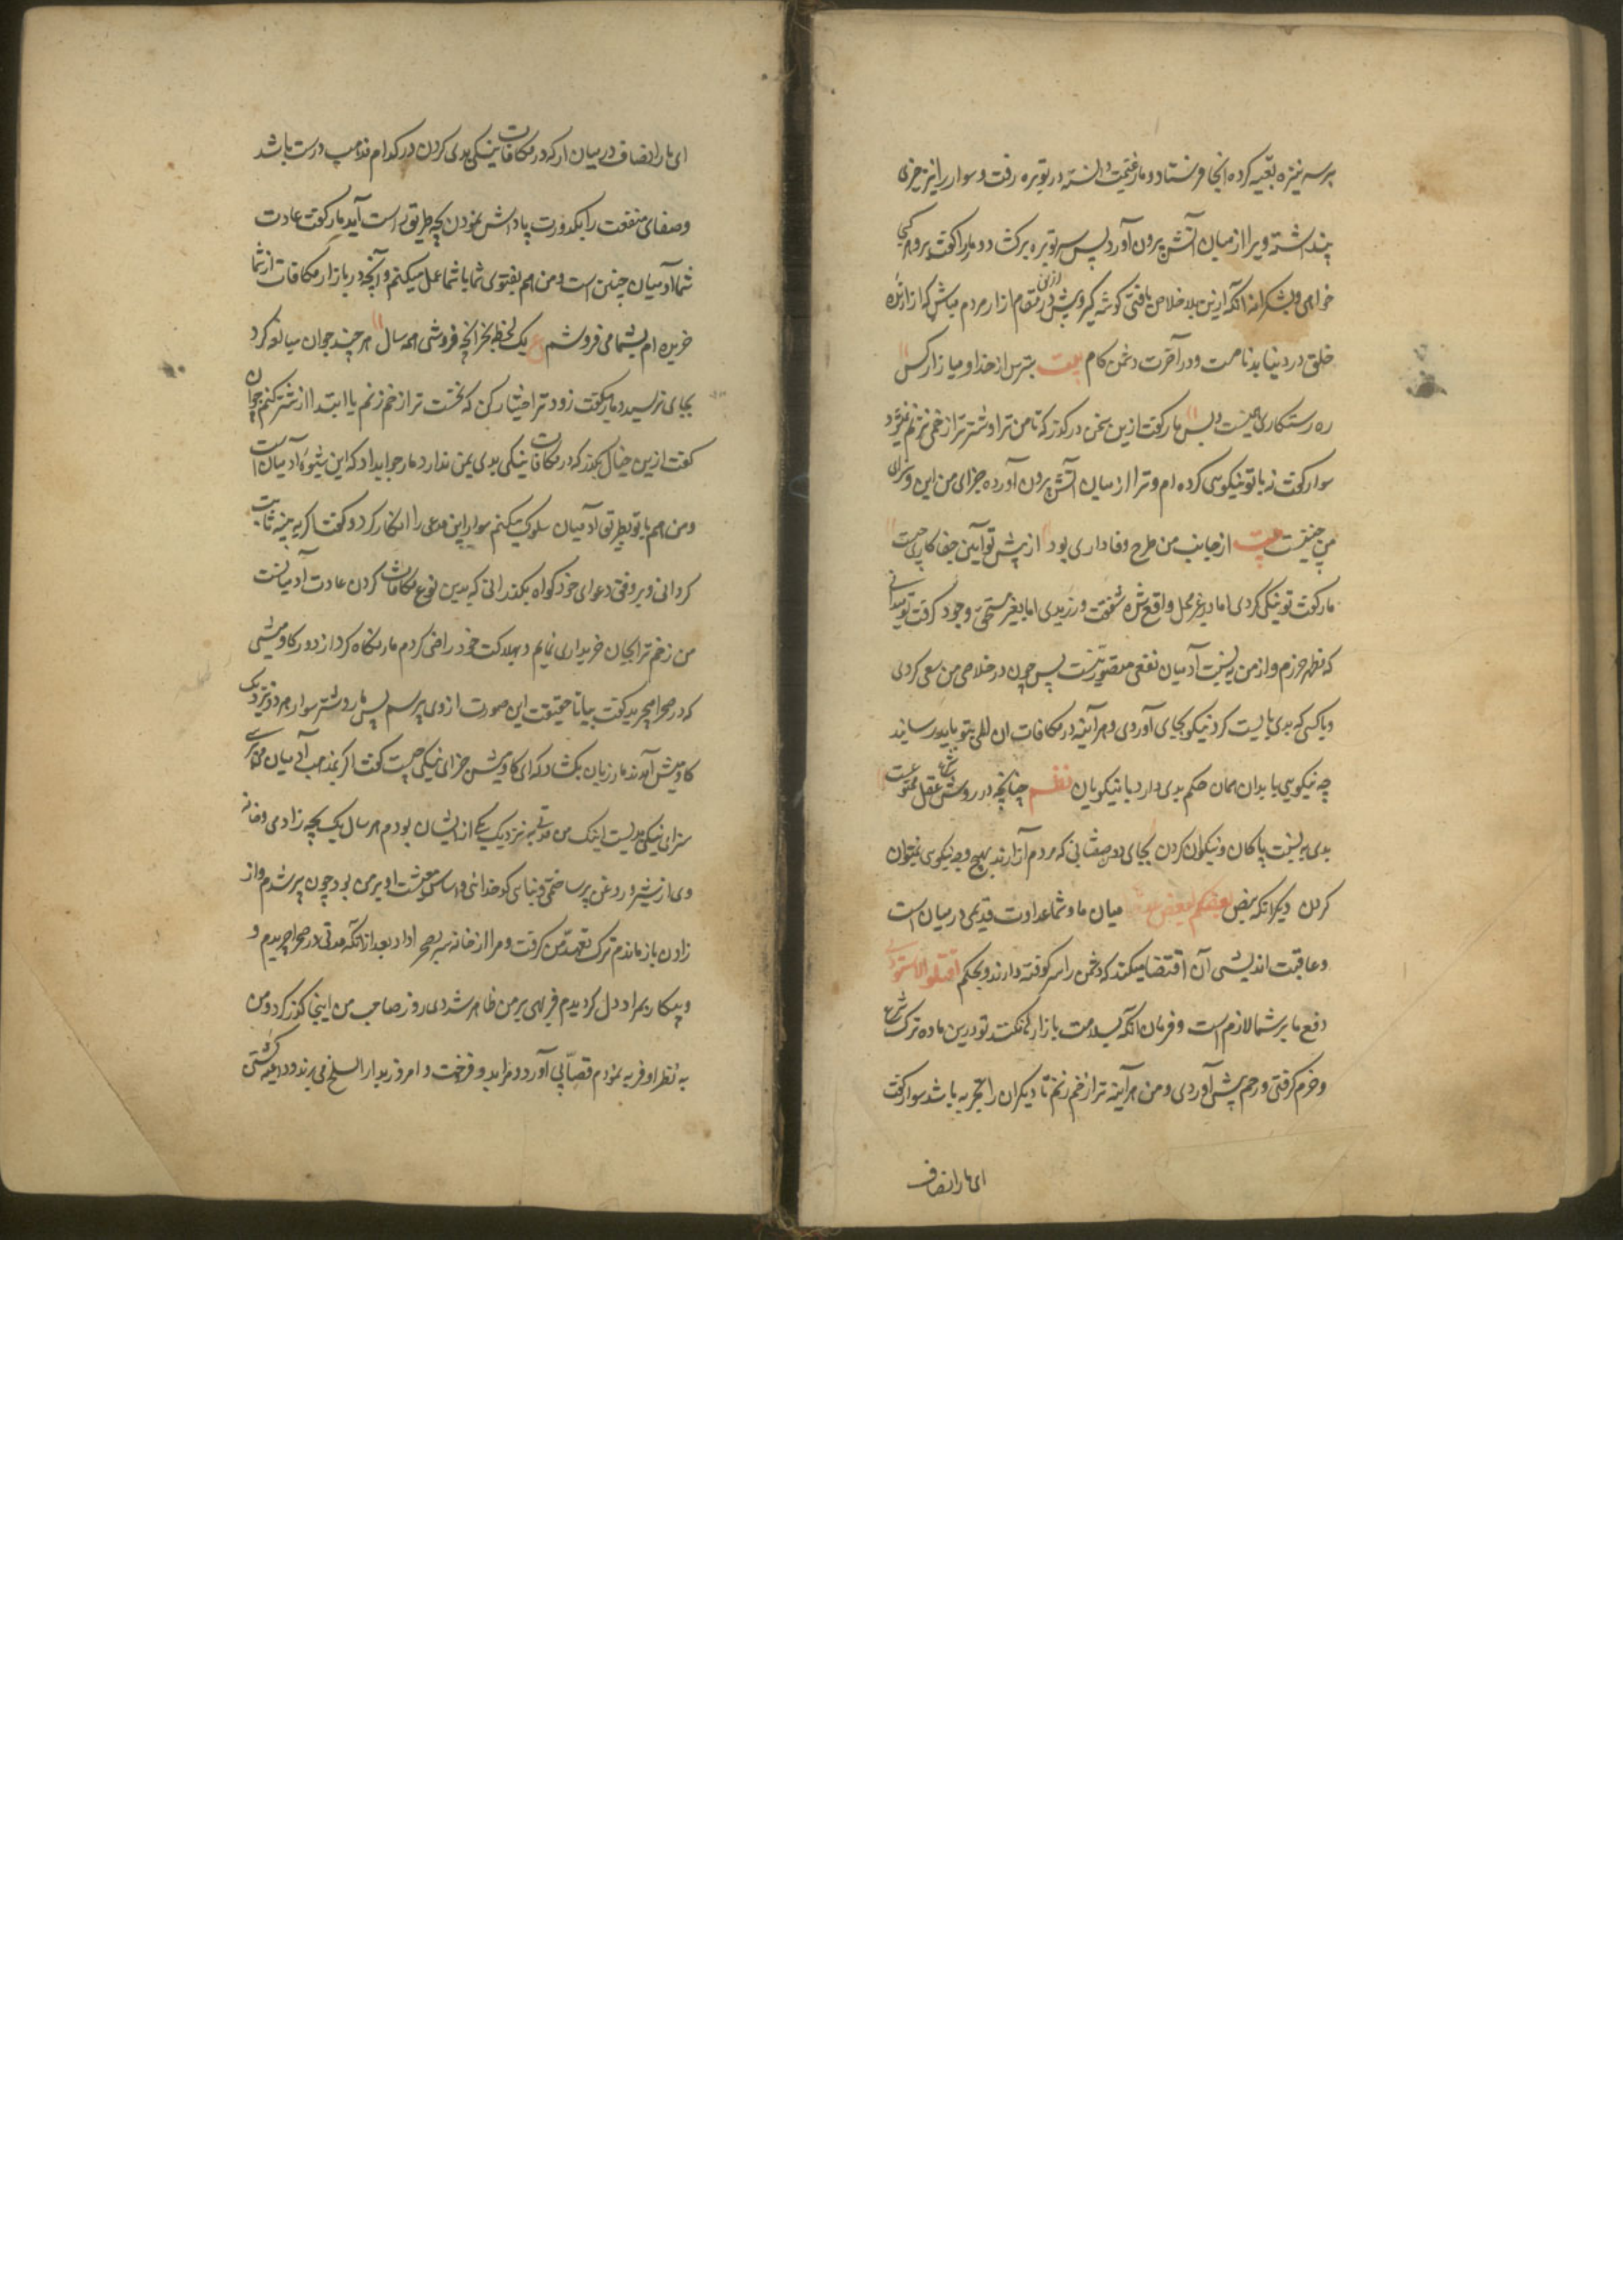 بر سر نیزه تعبیه کرده آنجا فرستاد و مار غنیمت دانسته در توبره رفت و سوار برانزخری
پنداشته ویرا از میان آتش برون آورد پس سر توبره برکشاد و مار را گفت برو هر کجا
خواهی و بشکرانه آنکه ازین بلا خلاص یافتی گوشه گیر و پیش ازین در مقام ازار مردم مباش که ازارنده
خلق در دنیا بدنامست و در آخرت دشمن کام بیت بترس از خدا و میازار کس
ره رستکاری همینست و بس مار گفت ازین سخن درگذر که تا من ترا و شتر ترا زخمی نزنم نمیروم
سوار گفت نه با تو نیکویی کرده ام و ترا از میان آتش برون آورده جزای من این و سزای
من چنینست بیت از جانب من طرح وفاداری بود از پیش تو آیین جفاکاری چیست
مار گفت تو نیکی کردی اما در غیر محل واقع شد شفقت ورزیدی اما بغیر مستحق وجود گرفت تو میدانی
که مظهر ضررم و از من به نسبت آدمیان نفعی متصور نیست پس چون در خلاصی من سعی کردی
و با کسی که بدی بایست کرد نیکو بجای آوردی هر آینه در مکافات ان المی بتو باید رسانید
چه نیکویی با بدان همان حکم بدی دارد با نیکویان نظم چنانچه در روش شرع و عقل ممنوعست
بدی به نسبت پاکان و نیکوان کردن بجای بد صفتانی که مردم آزارند بهیچ وجه نیکویی نمیتوان
کردن دیگر آنکه بعض بعضکم لبعض میان ما و شما عداوت قدیمی در میان است
و عاقبت اندیشی آن اقتضا میکند که دشمن را سر کوفته دارند و بحکم اقتلوا الاسودین
دفع ما بر شما لازم است و فرمان آنکه بسلامت باز ار نگذارند تو درین ماده ترک شرع
و حزم گرفتی و رحم پیش آوردی و من هر آینه ترا زخم زنم تا دیگران را تجربه باشد سوار گفت
ای مار انصاف
ای مار انصاف در میان ار که در مکافات نیکی بدی کردن در کدام مذهب درست باشد
و صفای منفعت را بکدورت پاداش نمودن بچه طریق راست آید مار گفت عادت
شما آدمیان چنین است و من هم بفتوی شما با شما عمل میکنم و آنچه در بازار مکافات از شما
خریده ام بشما می فروشم ع یک لحظه بخر آنچه فروشی همه سال هر چند جوان مبالغه کرد
بجای نرسید و مار میگفت زودتر اختیار کن که نخست ترا زخم زنم یا ابتدا از شتر کنم جوان
گفت ازین خیال بگذر که در مکافات نیکی بدی یمن ندارد مار جواب داد که این شیوه آدمیان است
و من هم با تو بطریق آدمیان سلوک میکنم سوار این مدعی را انکار کرد و گفت اگر به بینه ثابت
گردانی و بر وفق دعوای خود گواه بگذرانی که بدین نوع مکافات کردن عادت آدمیانست
من زخم ترا بجان خریداری نمایم و بهلاکت خود راضی گردم مار نگاه کرد از دور گاو میشی
که در صحرا میچرید گفت بیا تا حقیقت این صورت از وی پرسم پس مار و شتر سوار هر دو نزدیک
گاومیش آمدند مار زبان بگشاد که ای گاومیش جزای نیکی چیست گفت اگر بمذهب آدمیان میپرسی
سزای نیکی بدیست اینک من مدتی به نزدیک یکی از ایشان بودم هر سال یک بچه زادمی و خانه
وی از شیر و روغن پر ساختمی و بنای کدخدائی و اساس معیشت او بر من بود چون پیر شدم و از
زادن باز ماندم ترک تعهد من گرفت و مرا از خانه به صحرا داد بعد از آنکه مدتی در صحرا چریدم و
و بیکار بمراد دل گردیدم فربهی بر من ظاهر شد دی روز صاحب من اینجا گذر کرد و من
به نظر او فربه نمودم قصابی آورد و مرا بدو فروخت و امروز بدار السلخ می برند و داعیه کشتن